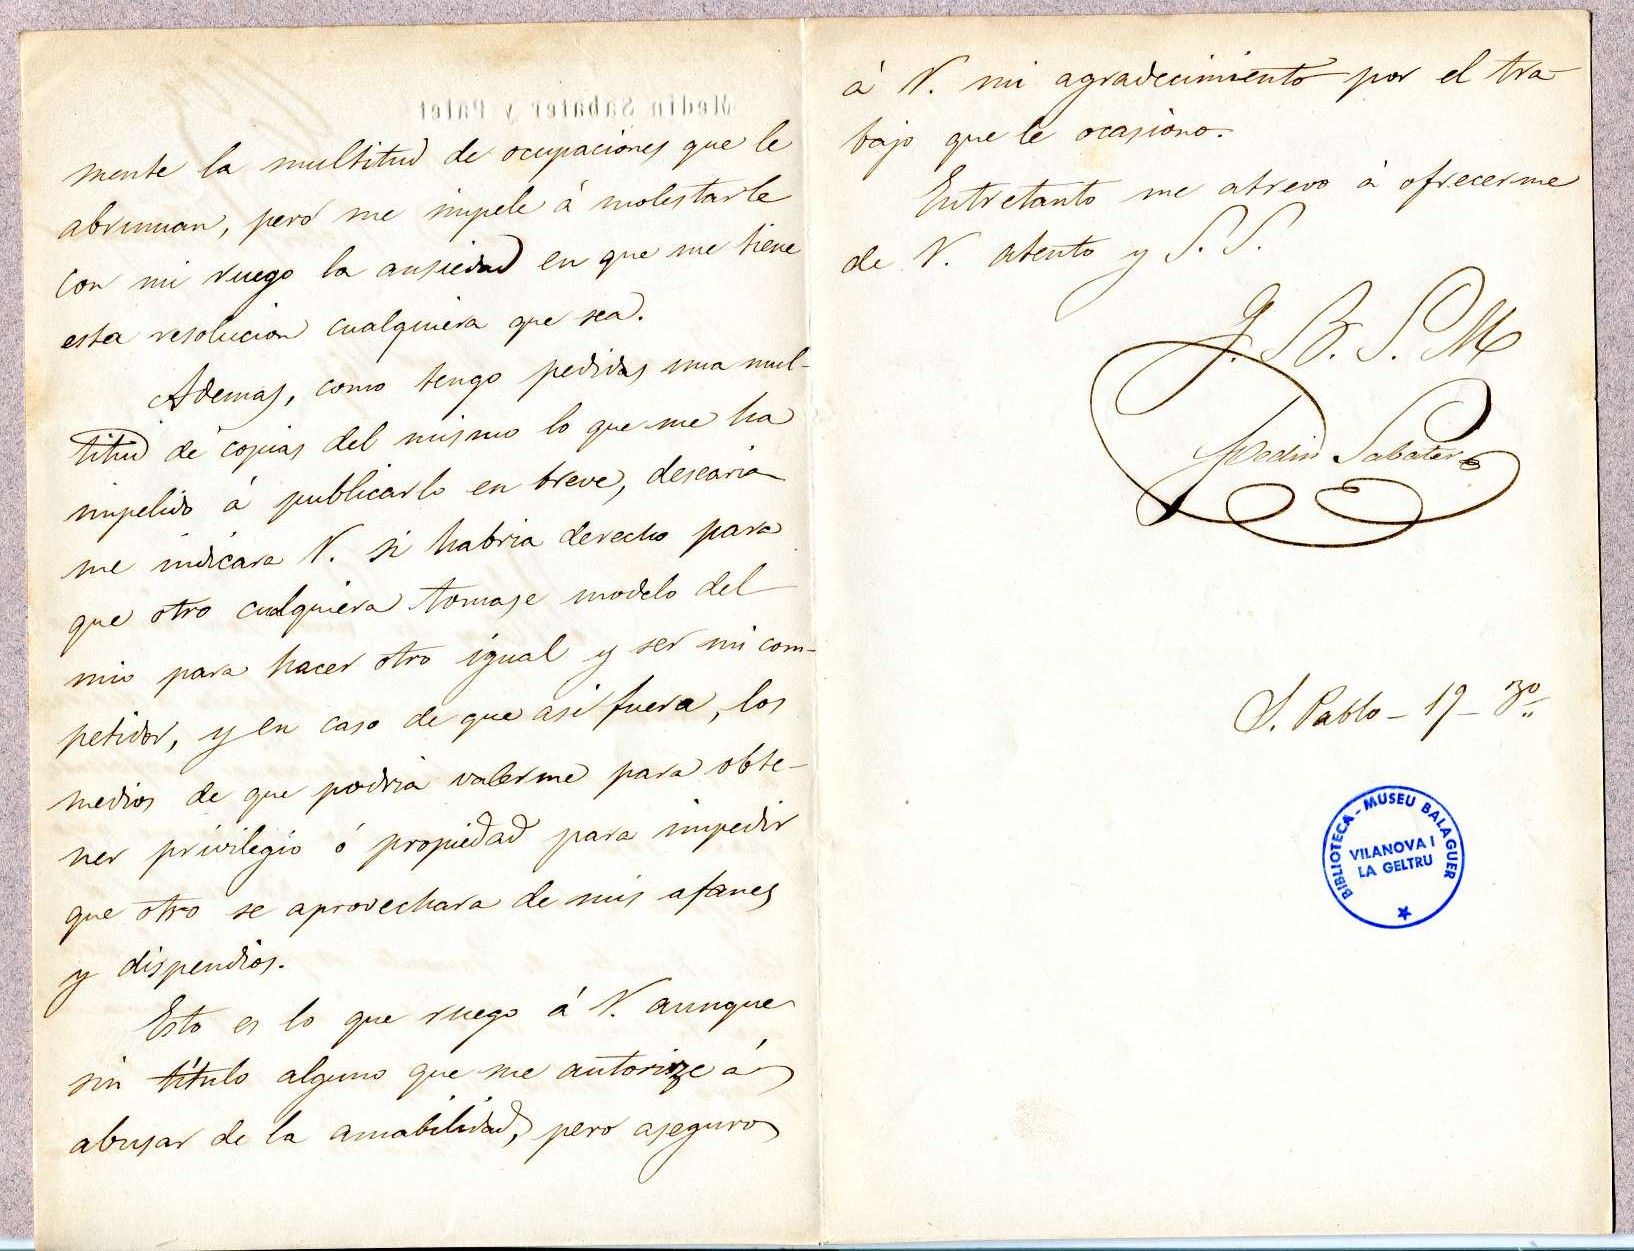 Medin Sabater y Palet
mente la multitud de ocupaciones que le
abruman, pero me impele á molestarle
con mi ruego la ansiedad en que me tiene
esta resolucion cualquiera que sea.
Ademas, como tengo pedidas una mul-
titud de copias del mismo lo que me ha
impelido á publicarlo en breve, desearia
me indicara V. si habria derecho para
que otro cualquiera tomase modelo del
mio para hacer otro igual y ser mi com-
petidor, y en caso de que asi fuera, los
medios de que podria valerme para obte-
ner privilegio ó propiedad para impedir
que otro se aprovechara de mis afanes
y dispendios.
Esto es lo que ruego á V. aunque
sin título alguno que me autorize á
abusar de la amabilidad, pero aseguro
á V. mi agradecimiento por el tra-
bajo que le ocasiono.
Entretanto me atrevo á ofrecerme
de V. atento y S. S.
Q. B. S. M
Medin Sabater
S. Pablo - 19 - 3º
BIBLIOTECA - MUSEU BALAGUER
VILANOVA I
LA GELTRU